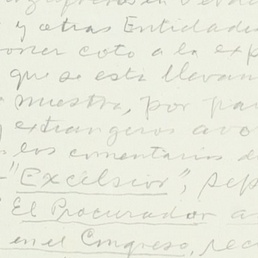 y otras Entidades
poner coto a la exp
que se está llevan
muestra, por par
extrangeros avo
los comentarios de
"Excélsior", sep
"El Procurador a
en el Congreso, rec